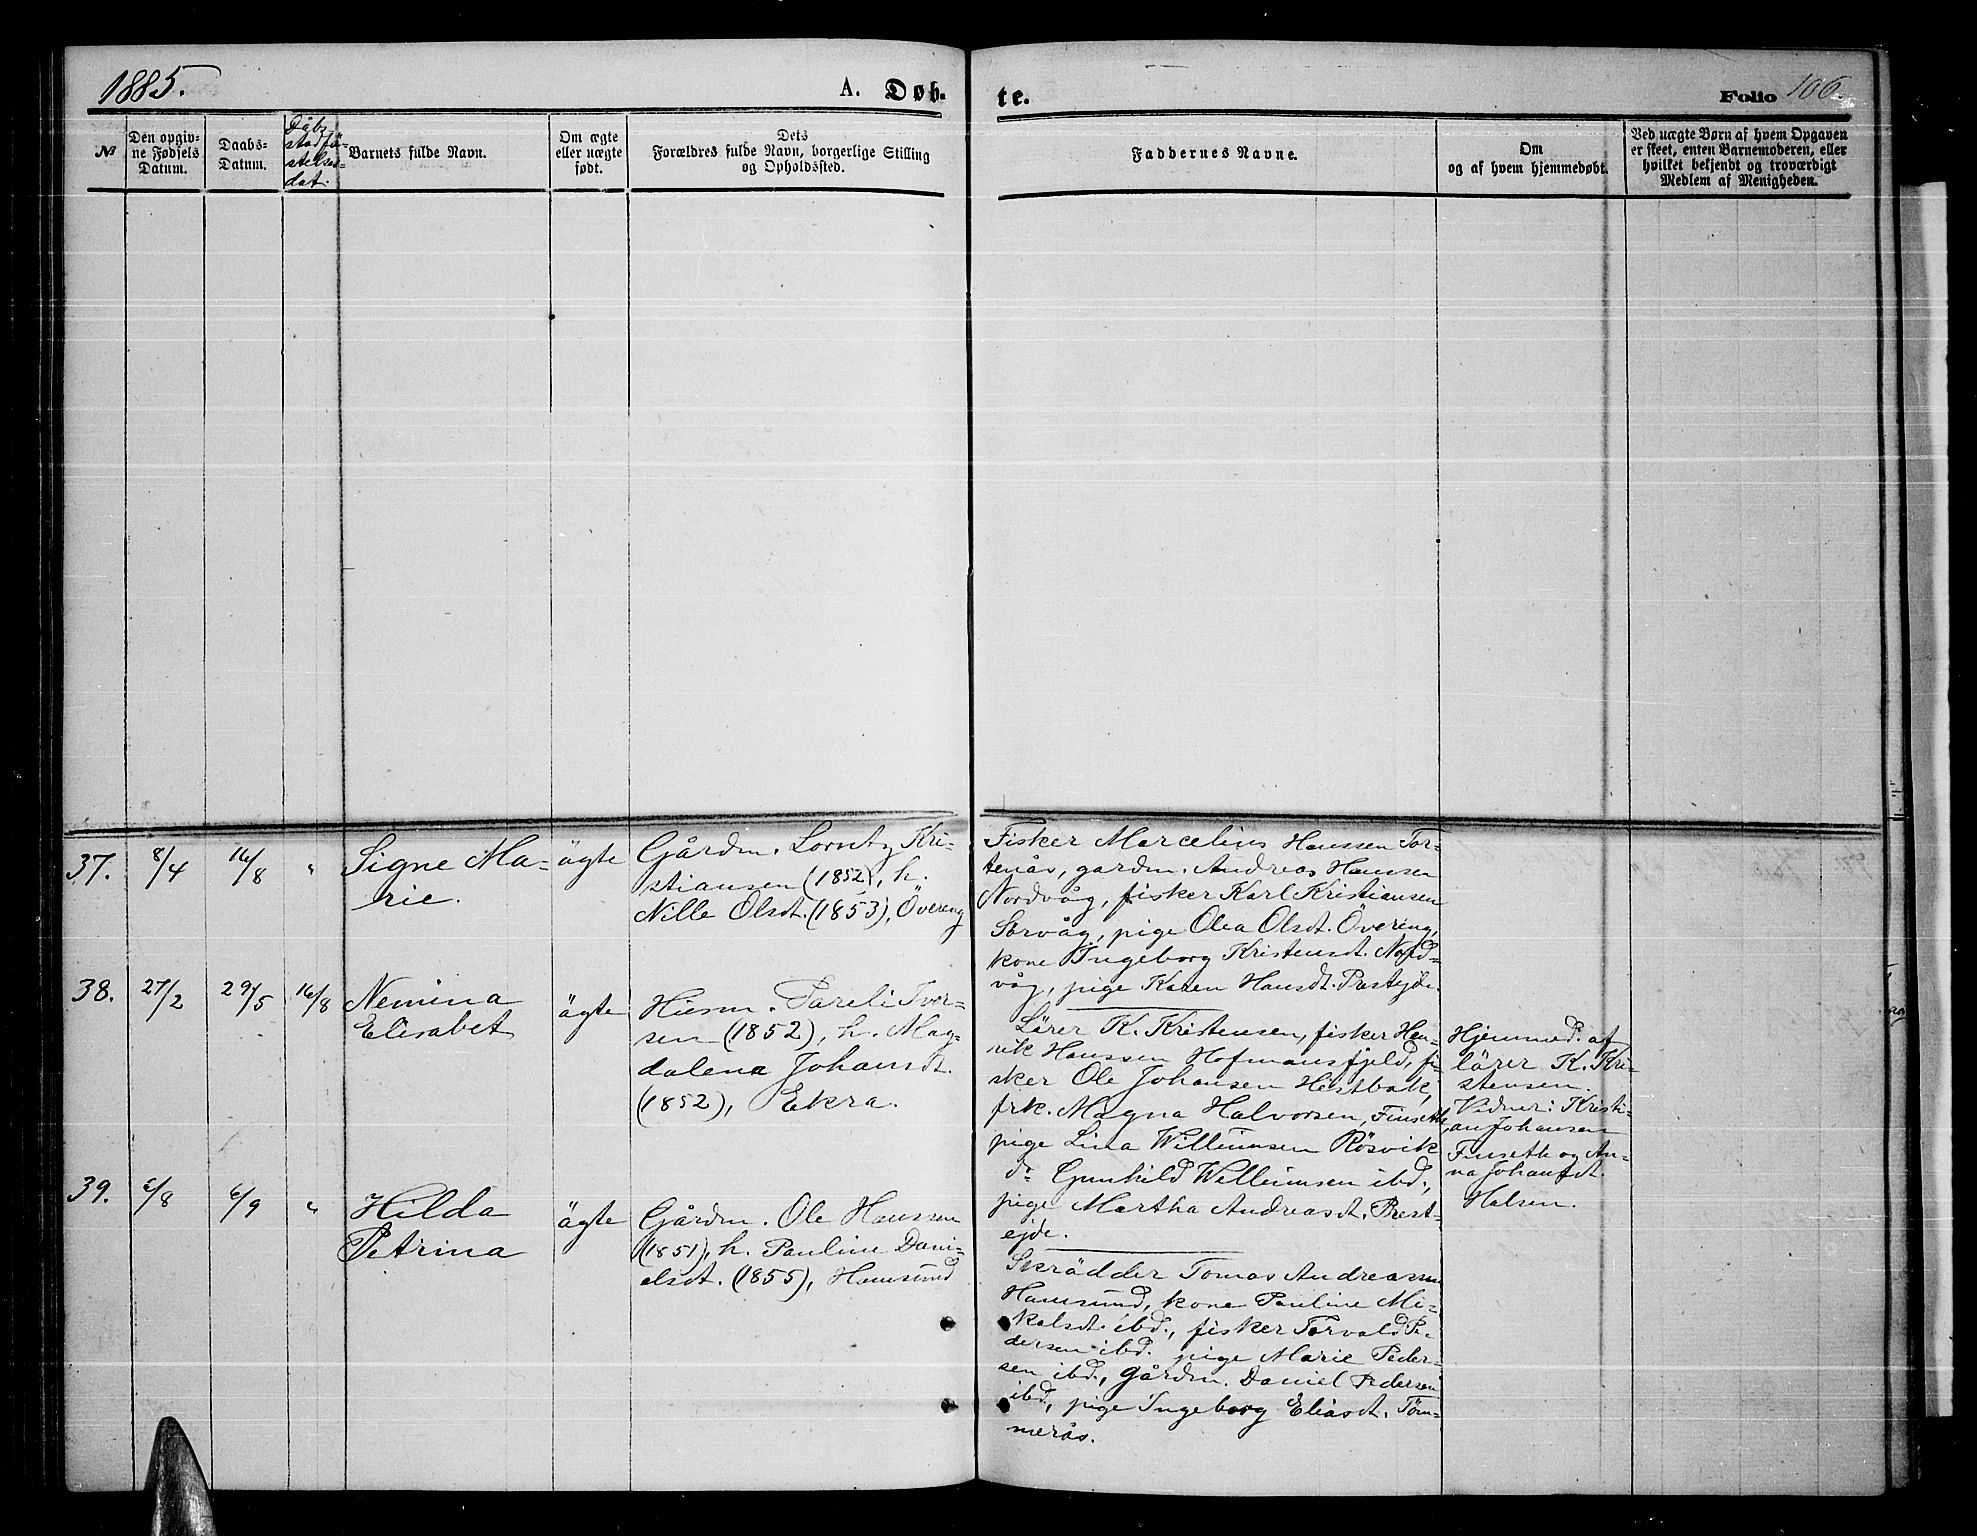 1885.
A. Døb-
te.
Folio 106.
№
Den opgiv-
ne Fødsels
Datum.
Daabs-
Datum.
Dåbs
stadfä-
stelses-
dat.
Barnets fulde Navn.
Om ægte
eller uægte
født.
Dets
Forældres fulde Navn, borgerlige Stilling
og Opholdssted.
Faddernes Navne.
Om
og af hvem hjemmedøbt.
Ved uægte Børn af hvem Opgaven
er skeet, enten Barnemoderen, eller
hvilket bekjendt og troværdigt
Medlem af Menigheden.
37.
8/4
16/8
"
Signe Ma-
rie.
ägte
Gårdm. Lorntz Kri-
stiansen (1852), h.
Nille Olsdt. (1853), Övereng
Fisker Marcelius Hanssen Tor-
tenås, gardm. Andreas Hanssen
Nordvåg, fisker Karl Kristiansen
Sørvåg, pige Olea Olsdt. Övereng,
kone Ingeborg Kristensdt. Nord-
våg, pige Karen Hansdt. Prestejde.
38.
27/2
29/5
16/8
Nemina
Elisabet
ägte
Husm. Pareli Ivor-
sen (1852), h. Mag-
dalena Johansdt.
(1852), Ekra.
Lärer K. Kristensen, fisker Hen-
rik Hanssen Hofmansfjeld, fi-
sker Ole Johansen Hestbak,
frk. Magna Halvorsen, Finseth,
pige Lina Willumsen Rösvik
do Gunhild Willumsen ibd.,
pige Martha Andreasdt. Prest-
ejde.
Hjemmed. af
lärer K. Kri-
stensen.
Vidner: Kristi-
an Johansen
Finseth og An-
na Johansdt.
Halsen.
39.
6/8
6/9
"
Hilda
Petrina
ägte
Gårdm. Ole Hanssen
(1851), h. Pauline Dani-
elsdt. (1855), Hamsund
Skrädder Tomas Andreassen
Hamsund, kone Pauline Mi-
kalsdt. ibd., fisker Torvald Pe-
dersen ibd. pige Marie Peder-
sen ibd., gårdm. Daniel Pedersen
ibd, pige Ingeborg Eliasdt. Töm-
merås.